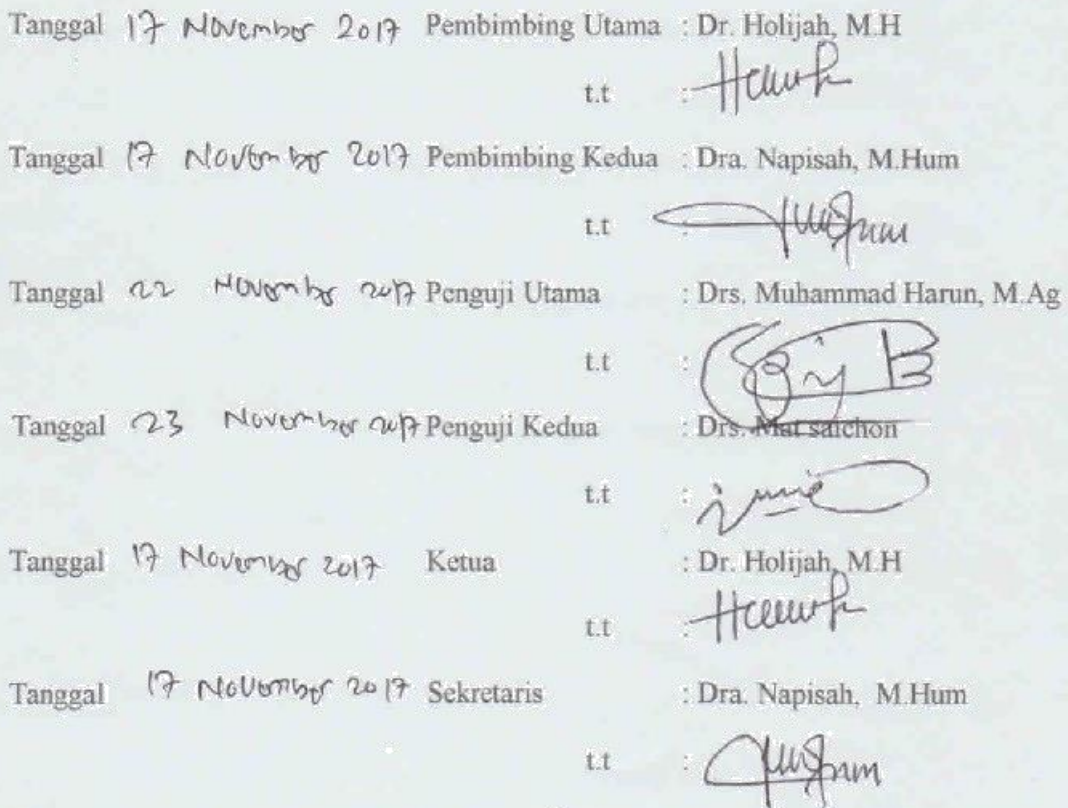 Tanggal 17 November 2017 Pembimbing Utama : Dr. Holijah, M.H
t.t :
Tanggal 17 November 2017 Pembimbing Kedua : Dra. Napisah, M.Hum
t.t :
Tanggal 22 November 2017 Penguji Utama : Drs. Muhammad Harun, M.Ag
t.t :
Tanggal 23 November 2017 Penguji Kedua : Drs. Mat saichon
t.t :
Tanggal 17 November 2017 Ketua : Dr. Holijah, M.H
t.t :
Tanggal 17 November 2017 Sekretaris : Dra. Napisah, M.Hum
t.t :